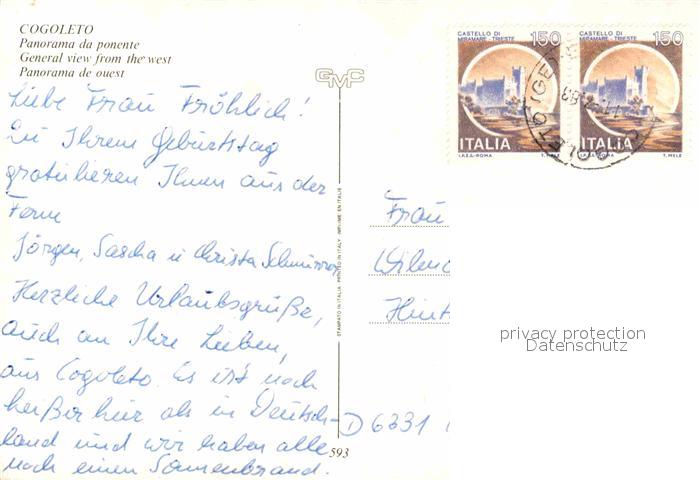 COGOLETO
Panorama da ponente
General view from the west
Panorama de ouest
GMC
Liebe Frau Fröhlich!
Zu Ihrem Geburtstag
gratulieren Ihnen aus der
Ferne
Jörgen, Sascha u Christa
Herzliche Urlaubsgrüße,
auch an Ihre Lieben,
aus Cogoleto. Es ist noch
heißer hier als in Deutsch-
land und wir haben alle
noch einen Sonnenbrand.
593
STAMPATO IN ITALIA PRINTED IN ITALY IMPRIME EN ITALIE
CASTELLO DI
MIRAMARE - TRIESTE 150
ITALIA
I.P.Z.S.-ROMA T. MELE
CASTELLO DI
MIRAMARE - TRIESTE 150
ITALIA
T. MELE
COGOLETO (GE)
Frau
Hint
D 6331
privacy protection
Datenschutz